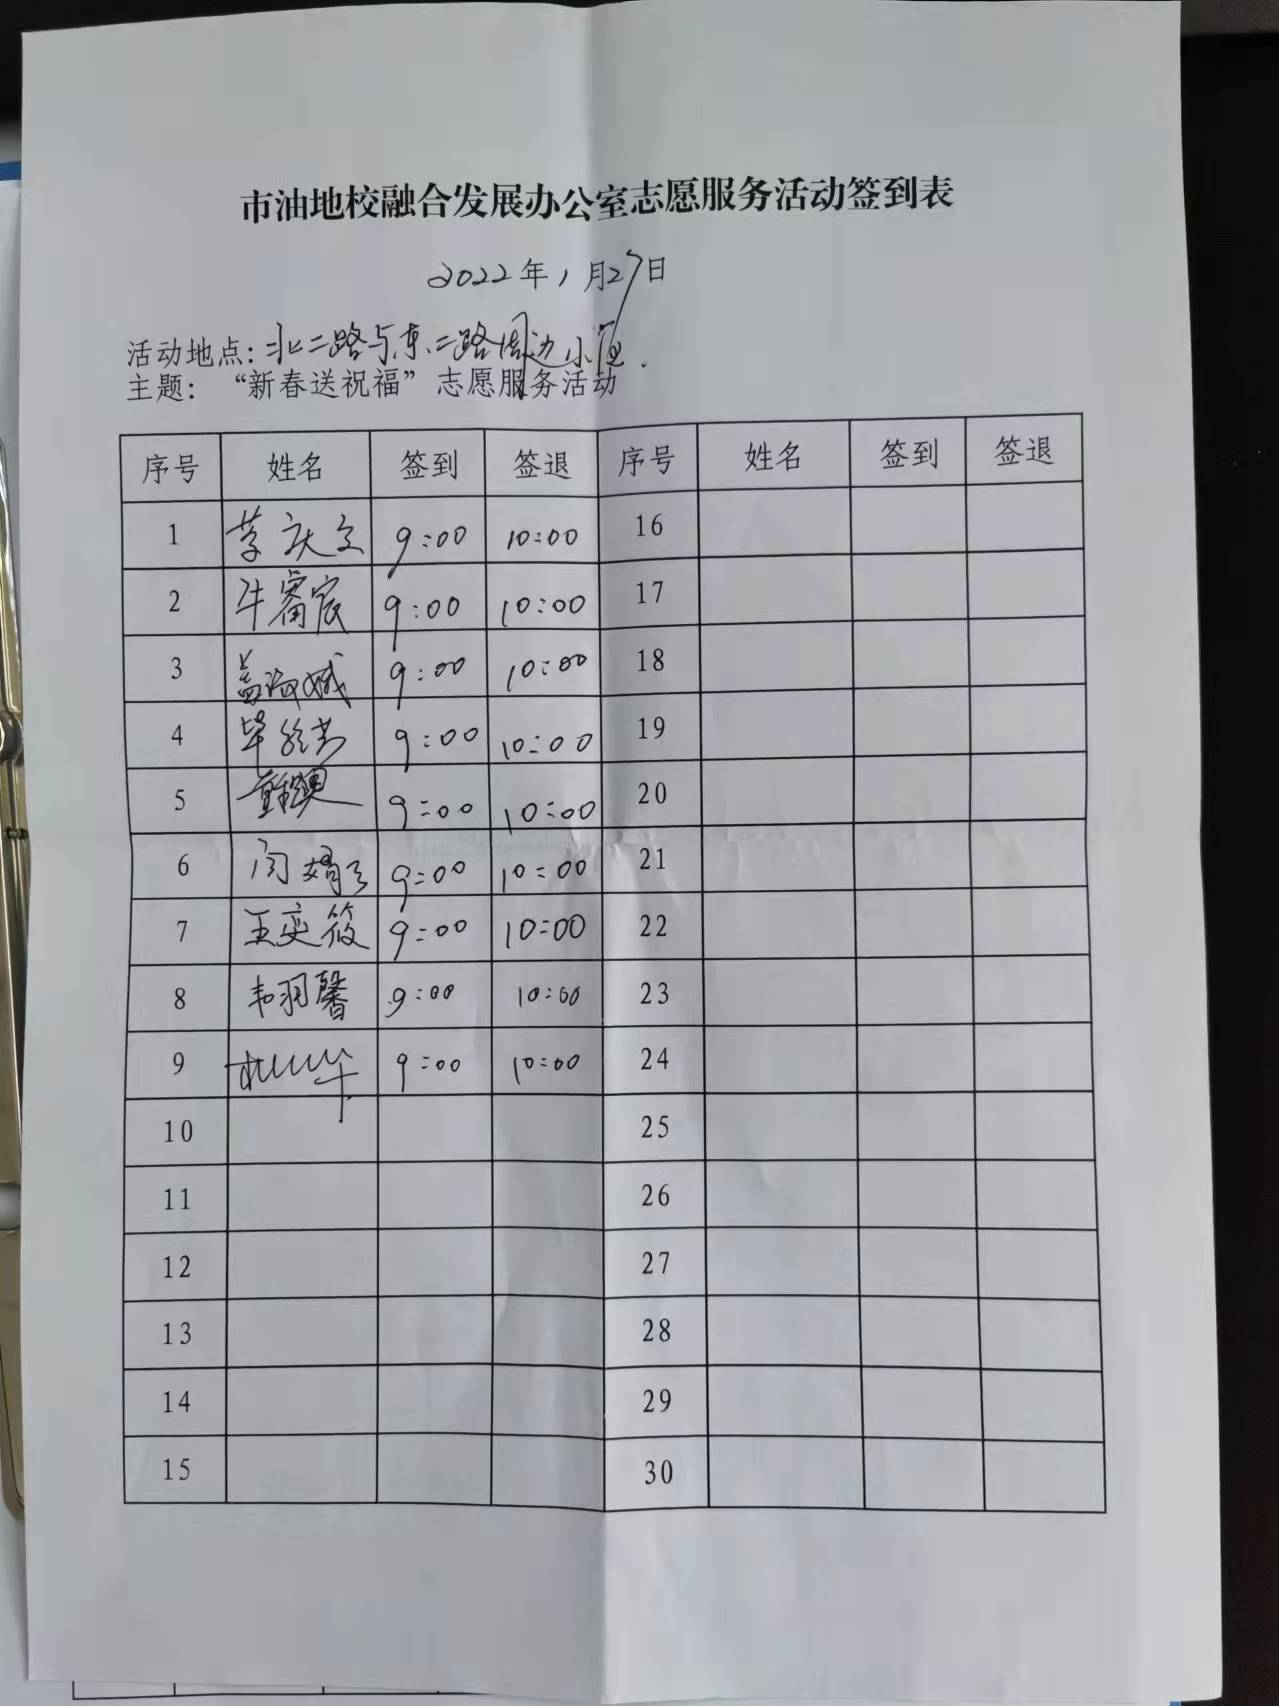 市油地校融合发展办公室志愿服务活动签到表
2022年1月27日
活动地点：北二路与东二路周边小区.
主题：“新春送祝福”志愿服务活动
序号 姓名 签到 签退 序号 姓名 签到 签退
1 李庆文 9:00 10:00 16
2 牛睿宸 9:00 10:00 17
3 9:00 10:00 18
4 9:00 10:00 19
5 9:00 10:00 20
6 9:00 10:00 21
7 王奕筱 9:00 10:00 22
8 韦羽馨 9:00 10:00 23
9 9:00 10:00 24
10 25
11 26
12 27
13 28
14 29
15 30